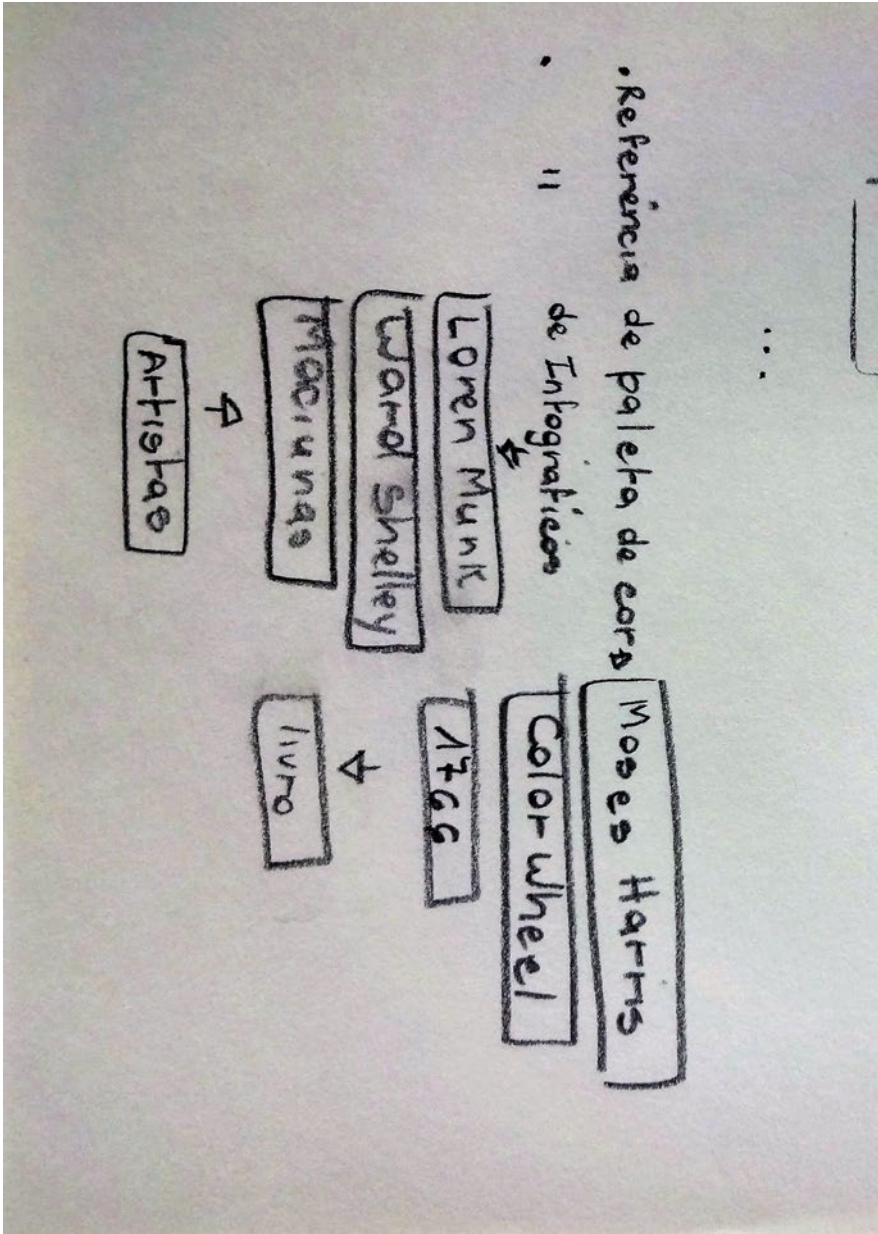 ...
• Referência de paleta de cors
Moses Harris
Color Wheel
1766
livro
• " de Infográficos
Loren Munk
Ward Shelley
Maciunas
Artistas